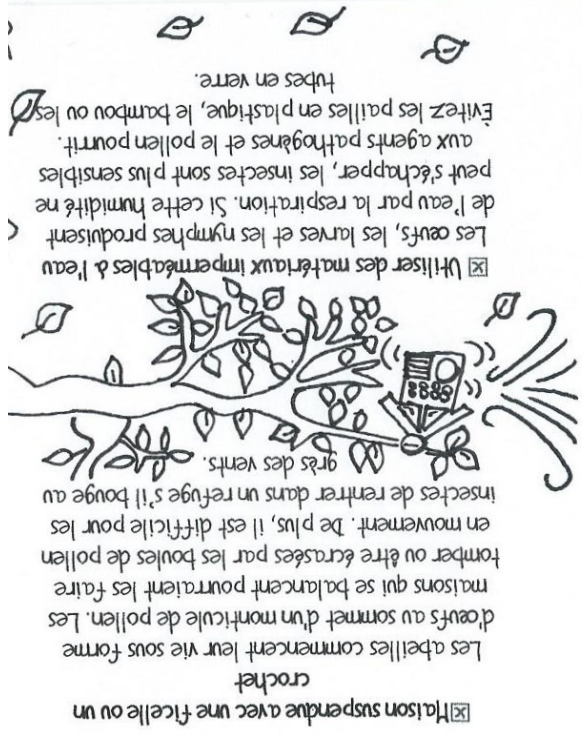 ☒ Maison suspendue avec une ficelle ou un
crochet
Les abeilles commencent leur vie sous forme
d'œufs au sommet d'un monticule de pollen. Les
maisons qui se balancent pourraient les faire
tomber ou être écrasées par les boules de pollen
en mouvement. De plus, il est difficile pour les
insectes de rentrer dans un refuge s'il bouge au
grès des vents.
☒ Utiliser des matériaux imperméables à l'eau
Les œufs, les larves et les nymphes produisent
de l'eau par la respiration. Si cette humidité ne
peut s'échapper, les insectes sont plus sensibles
aux agents pathogènes et le pollen pourrit.
Èvitez les pailles en plastique, le bambou ou les
tubes en verre.